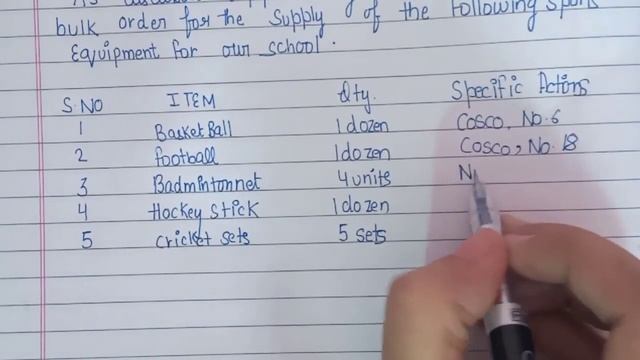 bulk order for the Supply of the Following Sports
Equipment for our school.
S.NO ITEM Qty. Specific Actions
1 Basket Ball 1 dozen Cosco, No. 6
2 football 1 dozen Cosco, No. 18
3 Badmintonnet 4 units N
4 Hockey stick 1 dozen
5 cricket sets 5 sets